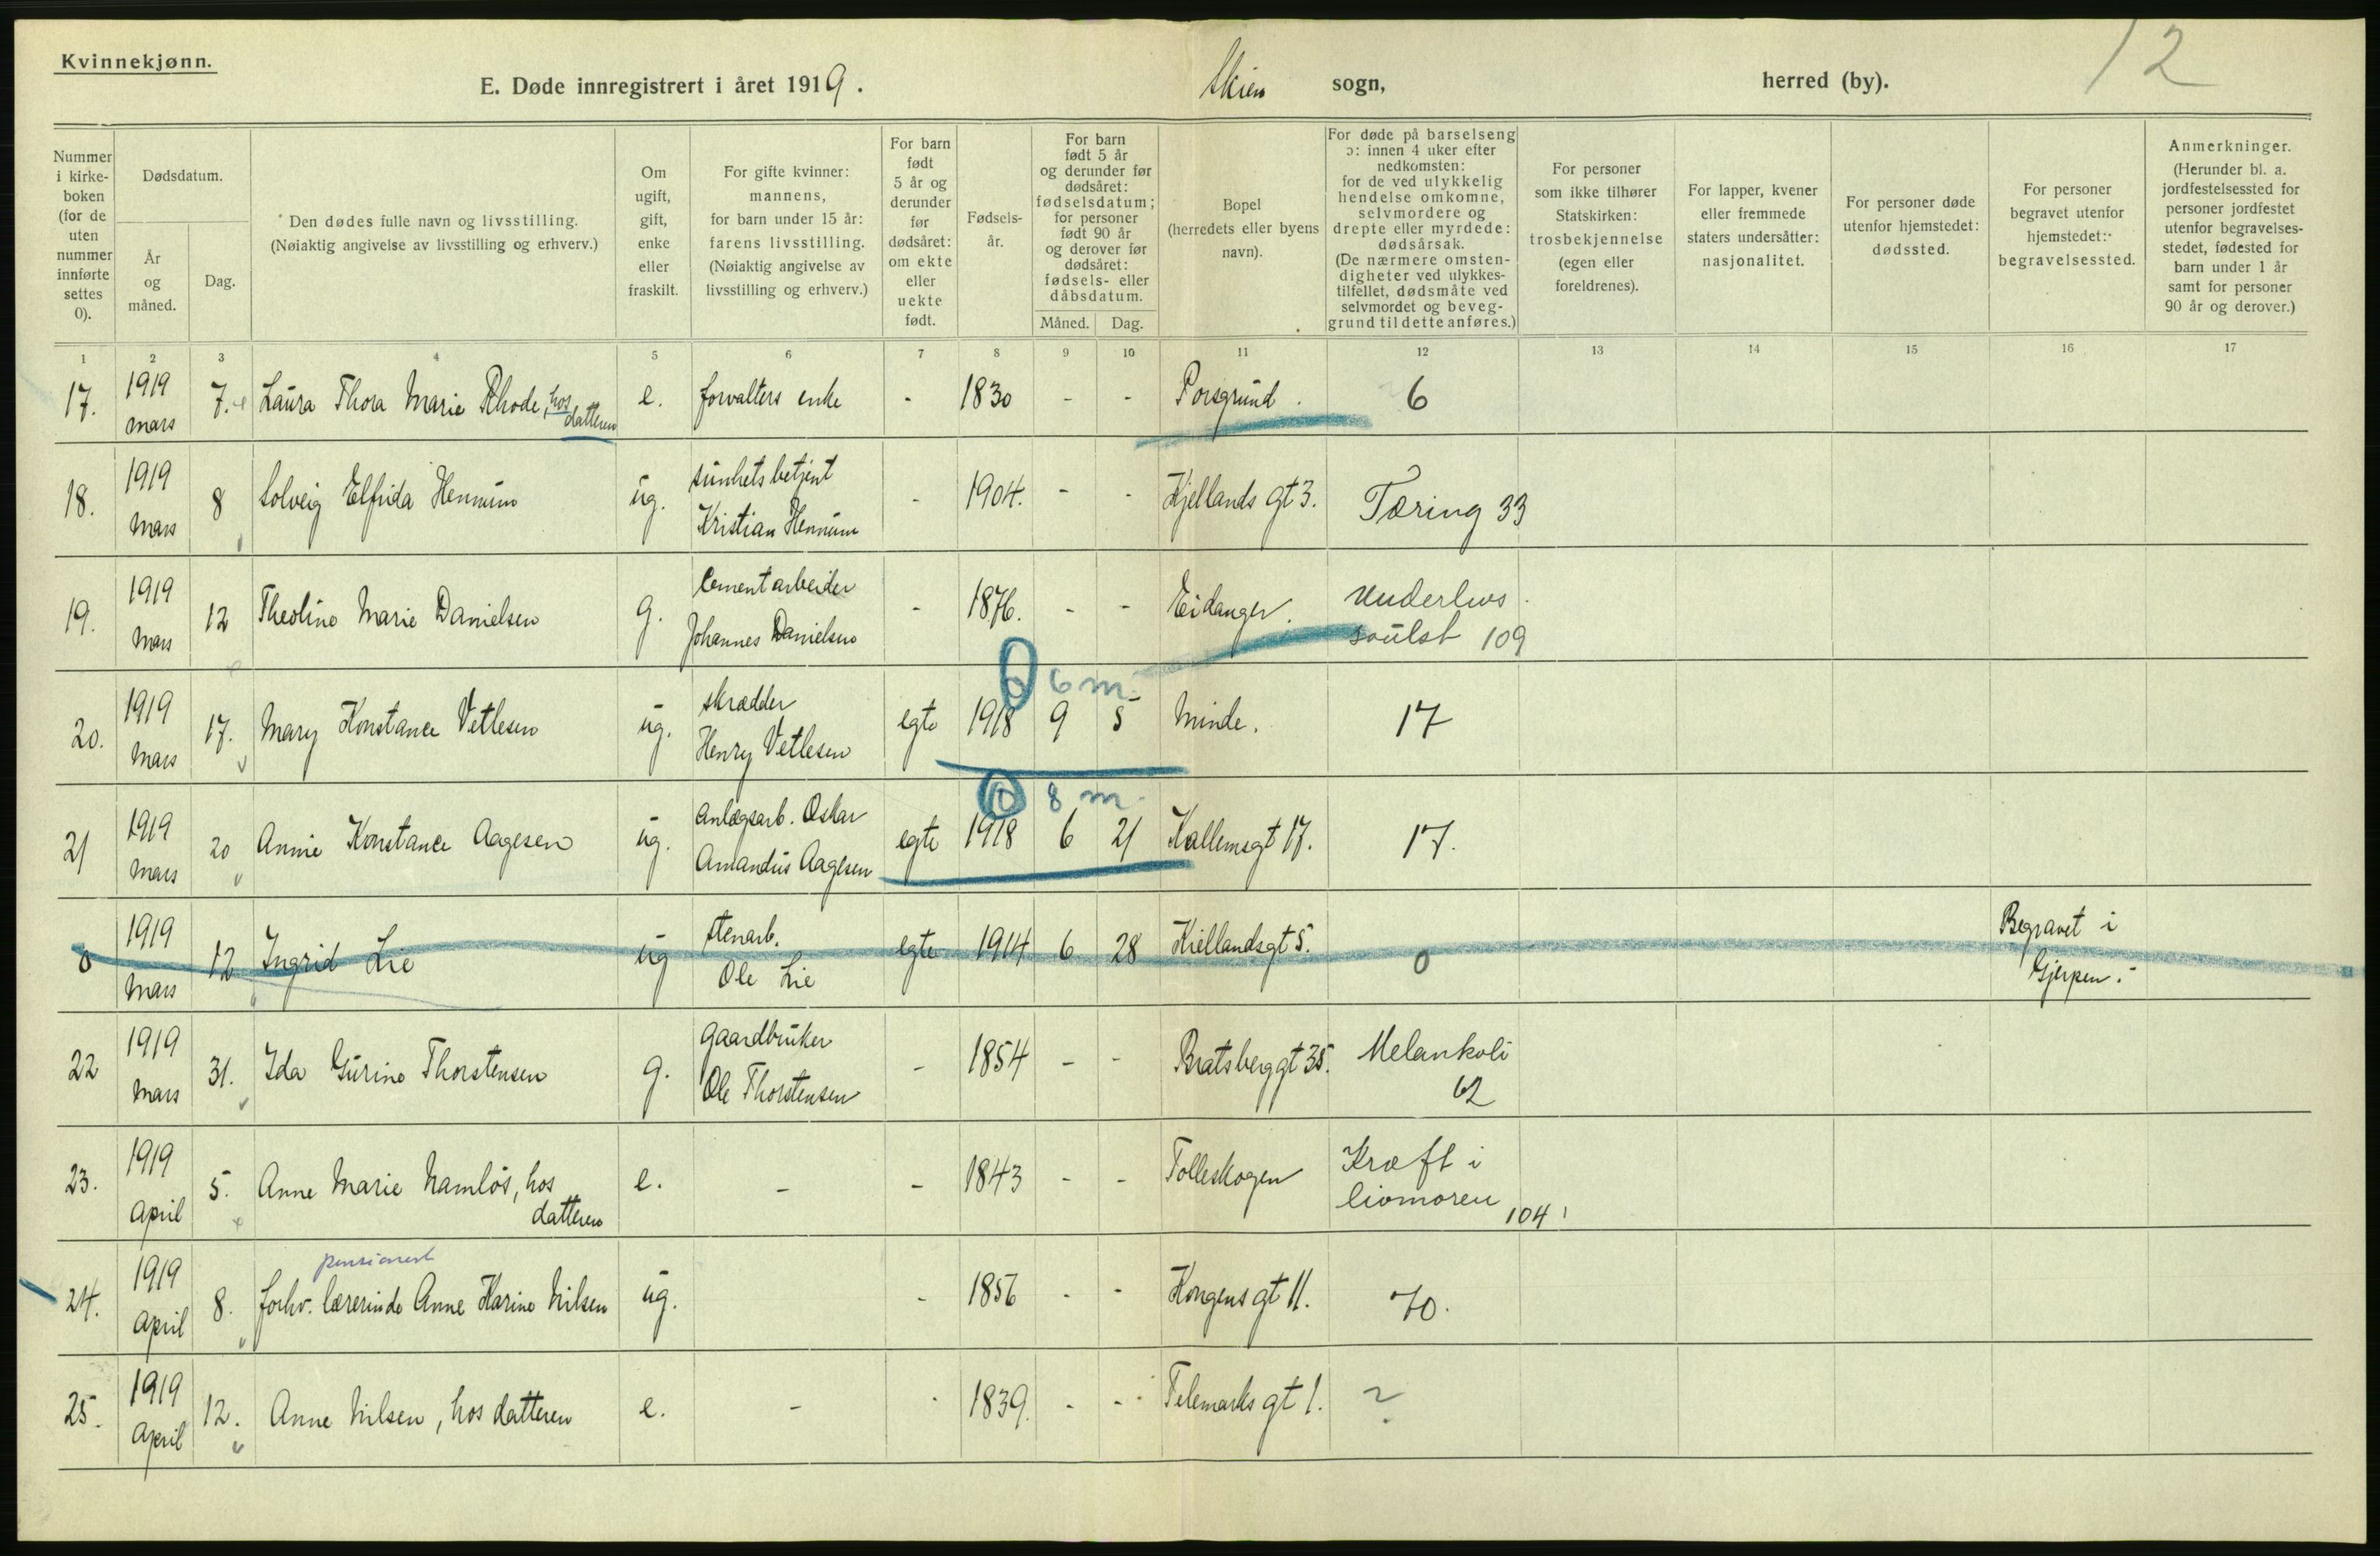 Kvinnekjønn.
12
E. Døde innregistrert i året 1919. Skien sogn, herred (by).
Nummer i kirke-boken (for de uten nummer innførte settes 0).
Dødsdatum.
År og måned.
Dag.
Den dødes fulle navn og livsstilling.
(Nøiaktig angivelse av livsstilling og erhverv.)
Om ugift, gift, enke eller fraskilt.
For gifte kvinner: mannens, for barn under 15 år: farens livsstilling.
(Nøiaktig angivelse av livsstilling og erhverv.)
For barn født 5 år og derunder før dødsåret: om ekte eller uekte født.
Fødsels-år.
For barn født 5 år og derunder før dødsåret: fødselsdatum; for personer født 90 år og derover før dødsåret: fødsels- eller dåbsdatum.
Måned. Dag.
Bopel (herredets eller byens navn).
For døde på barselseng ɔ: innen 4 uker efter nedkomsten: for de ved ulykkelig hendelse omkomne, selvmordere og drepte eller myrdede: dødsårsak.
(De nærmere omsten-digheter ved ulykkes-tilfellet, dødsmåte ved selvmordet og beveg-grund til dette anføres.)
For personer som ikke tilhører Statskirken: trosbekjennelse (egen eller foreldrenes).
For lapper, kvener eller fremmede staters undersåtter: nasjonalitet.
For personer døde utenfor hjemstedet: dødssted.
For personer begravet utenfor hjemstedet: begravelsessted.
Anmerkninger.
(Herunder bl. a. jordfestelsessted for personer jordfestet utenfor begravelses-stedet, fødested for barn under 1 år samt for personer 90 år og derover.)
1 2 3 4 5 6 7 8 9 10 11 12 13 14 15 16 17
17. 1919 mars 7. Laura Thora Marie Rhode, hos datteren e. forvalters enke - 1830 - - Porsgrund. 6
18. 1919 mars 8 Solveig Elfrida Hennum ug. sunhetsbetjent Kristian Hennum - 1904. - - Kjellands gt 3. Tæring 33
19. 1919 mars 12 Theoline Marie Danielsen g. Cementarbeider Johannes Danielsen - 1876. - - Eidanger. Underlivs soulst 109
6 m.
20. 1919 mars 17. Mary Konstance Vetlesen ug. skrædder Henry Vetlesen egte 1918 9 5 Minde. 17
8 m.
21 1919 mars 20 Annie Konstance Aagesen ug. Anlægsarb. Oskar Amandus Aagesen egte 1918 6 21 Kallemsgt 17. 17.
0 1919 mars 12 Ingrid Lie ug stenarb. Ole Lie egte 1914 6 28 Kiellandsgt 5. 0 Begravet i Gjerpen.
22 1919 mars 31. Ida Gurine Thorstensen g. gaardbruker Ole Thorstensen - 1854 - - Bratsberggt 35. Melankoli 62
23. 1919 April 5. Anne Marie Namløs, hos datteren e. - - 1843 - - Tolleskogen Kræft i livmoren 104
pensionert
24. 1919 April 8. forhv. lærerinde Anne Karine Nilsen ug. - 1856 - - Kongens gt 11. 70.
25. 1919 April 12. Anne Nilsen, hos datteren e. - - 1839. - - Telemarks gt 1. ?